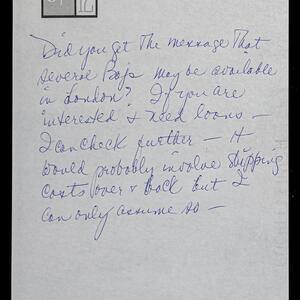 Did you get the message that
several Bojs may be available
in London? If you are
interested & need loans –
I can check further – It
would probably involve shipping
costs over & back but I
can only assume so –